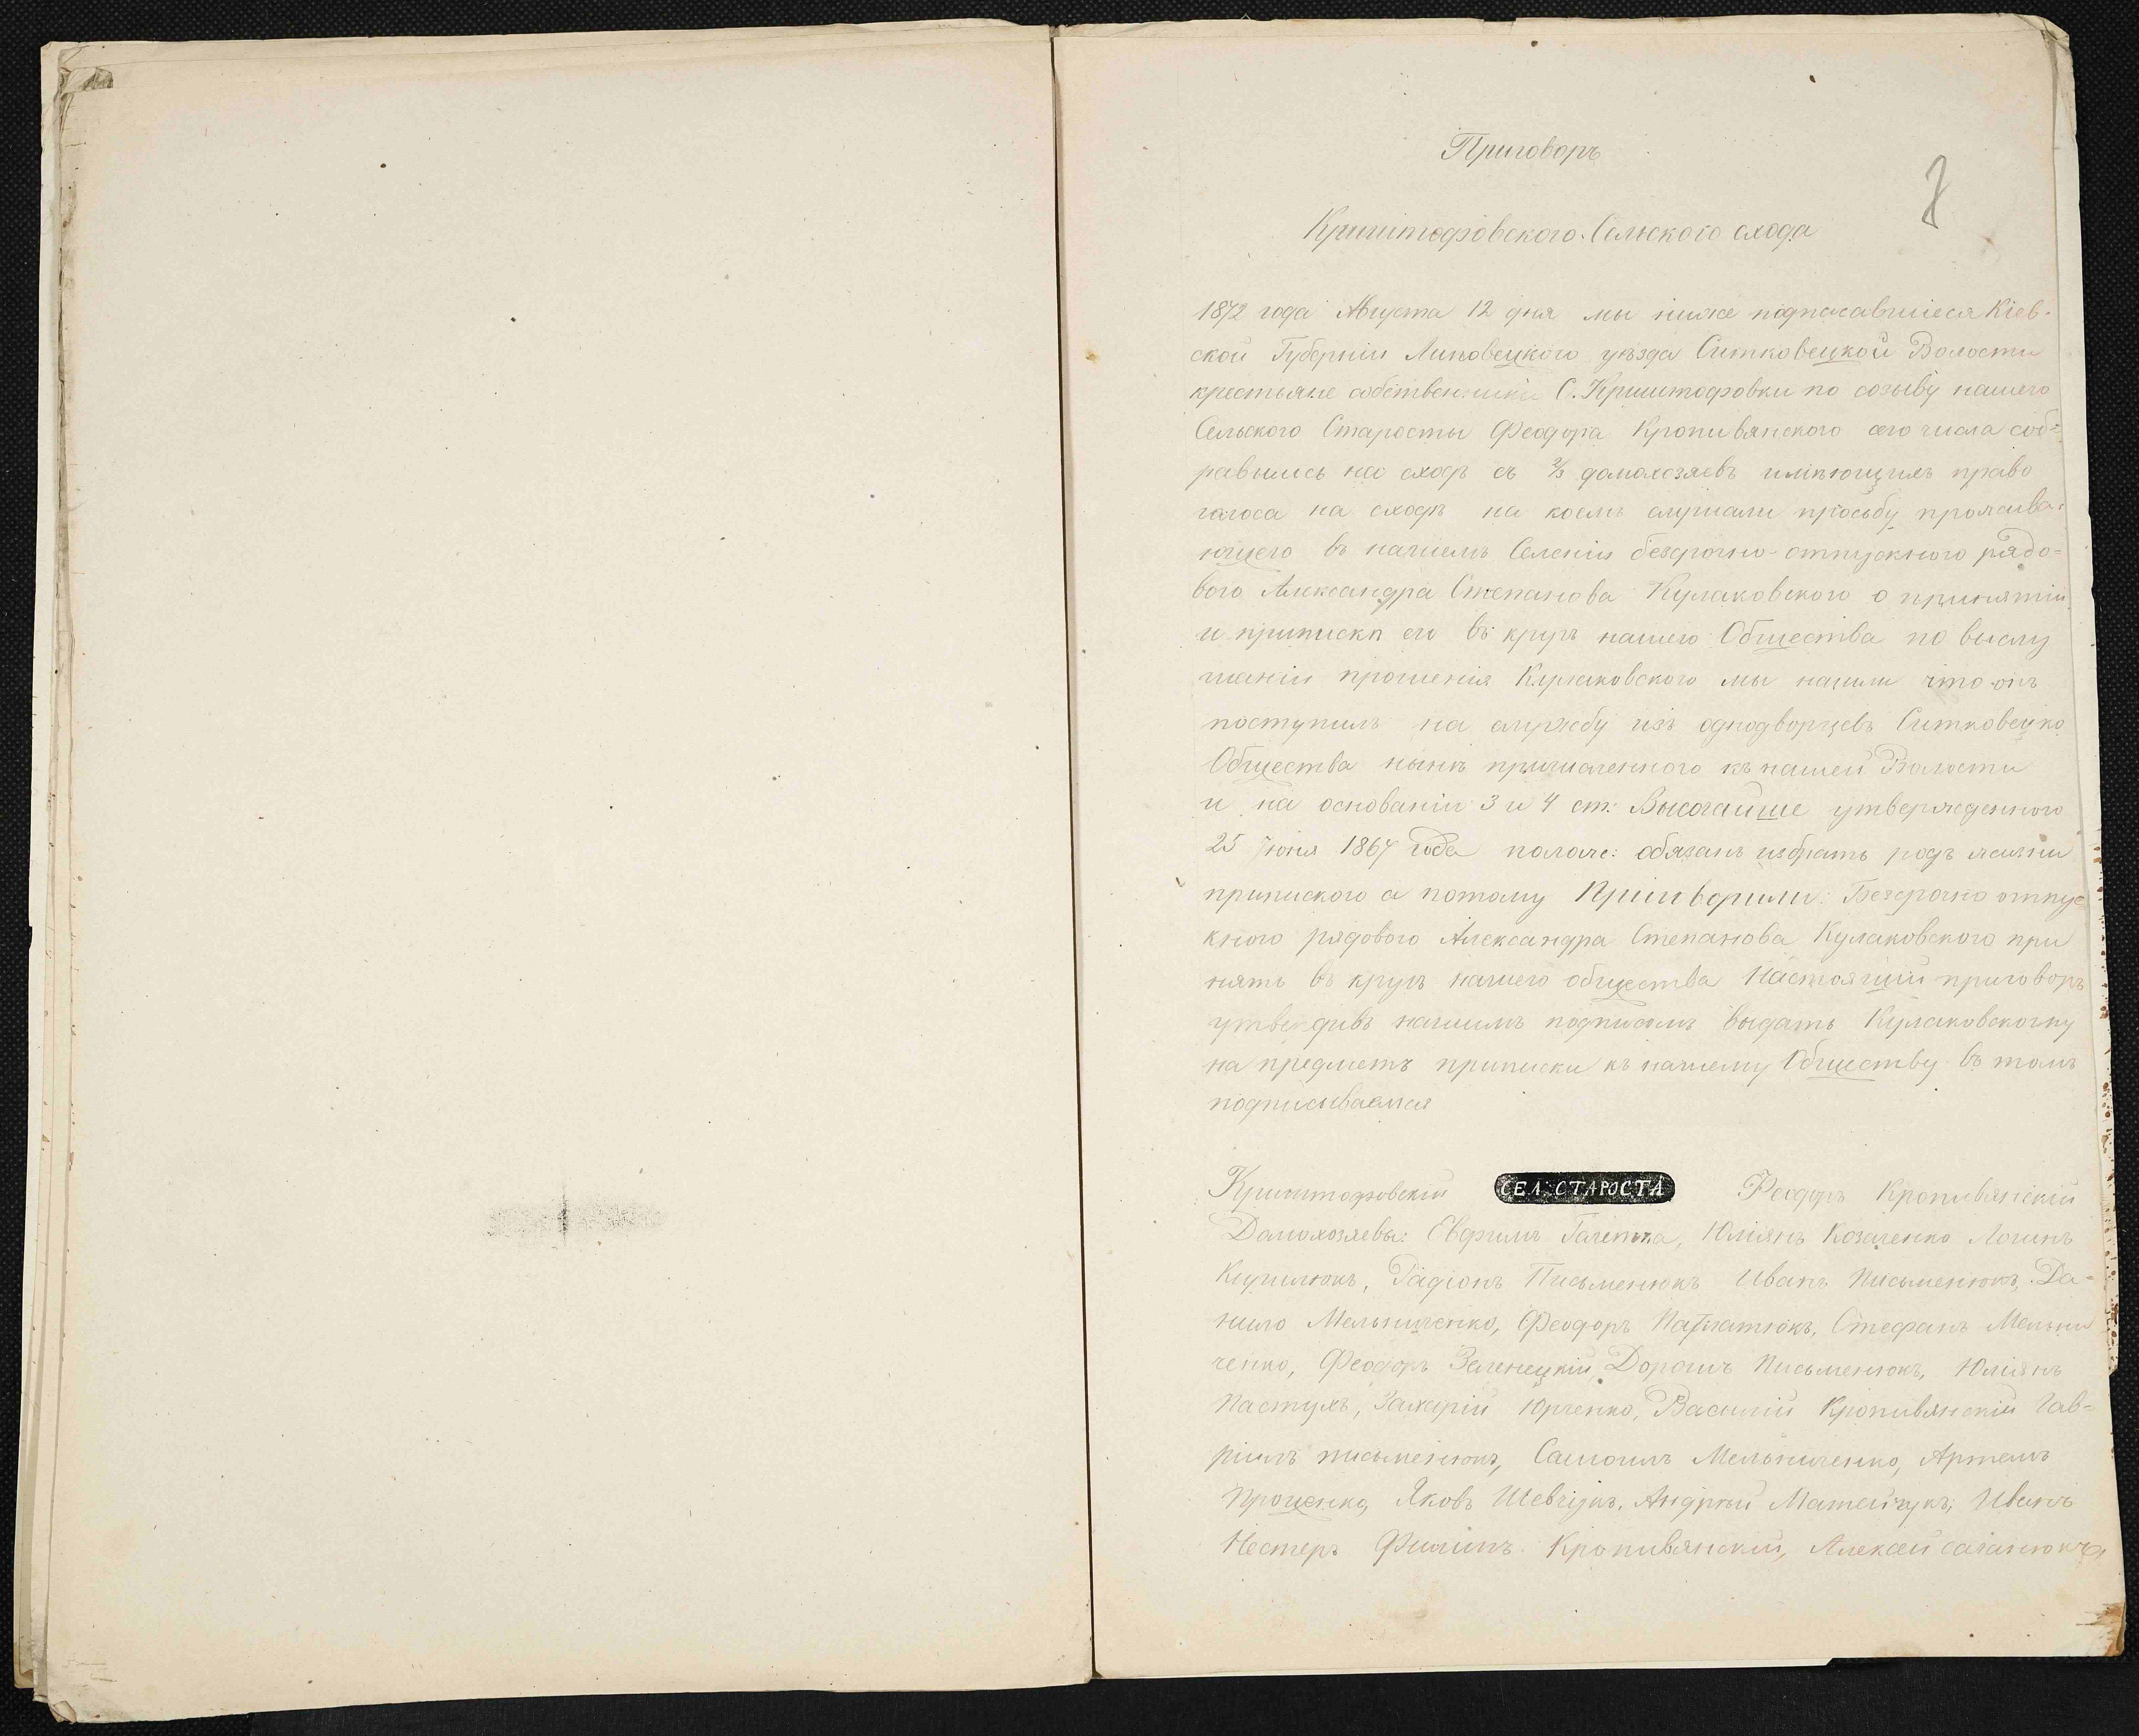 Приговоръ
7
Криштофовского Сельского схода
1872 года Августа 12 дня мы ниже подписавшиеся Кіев-
ской Губерніи Липовецкого уѣзда Ситковецкой Волости
крестьяне собственники С. Криштофовки по созыву нашего
Сельского Старосты Феодора Кропивянского сего числа соб=
равшись на сходъ съ 2/3 домохозяевъ имѣющихъ право
голоса на сходѣ на коемъ слушали просьбу прожива-
ющего въ нашемъ Селеніи безсрочно-отпускного рядо=
вого Александра Степанова Кулаковского о принятіи
и припискѣ его въ кругъ нашего Общества по выслу
шаніи прошенія Кулаковского мы нашли что онъ
поступилъ на службу изъ однодворцевъ Ситковецко
Общества нынѣ причисленного къ нашей Волости
и на основаніи 3 и 4 ст: Высочайше утвержденного
25 Іюня 1867 года полож: обязанъ избрать родъ жизни
приписного а потому Приговорили: Безсрочно отпус
кного рядового Александра Степанова Кулаковского при
нять въ кругъ нашего общества Настоящій приговоръ
утвердивъ нашимъ подписомъ выдать Кулаковскому
на предметъ приписки къ нашему Обществу въ томъ
подписываемся
Криштофовскій СЕЛ. СТАРОСТА Феодоръ Кропивянскій
Домохозяевы: Евфимъ Юліянъ Козаченко Логинъ
Радіонъ Письменюкъ Иванъ Письменюкъ, Да=
нило Мельниченко, Феодоръ Стефанъ Мельни
ченко, Феодоръ Зеленецкій, Дорошъ Письменюкъ, Юліянъ
Пастухъ, Захарій Юрченко, Василій Кропивянскій Гав=
ріилъ письменюкъ, Самоилъ Мельниченко, Артемъ
Проценко, Яковъ Шевчукъ, Андрѣй Матейчукъ, Иванъ
Нестеръ Филипъ Кропивянскій, Алексей